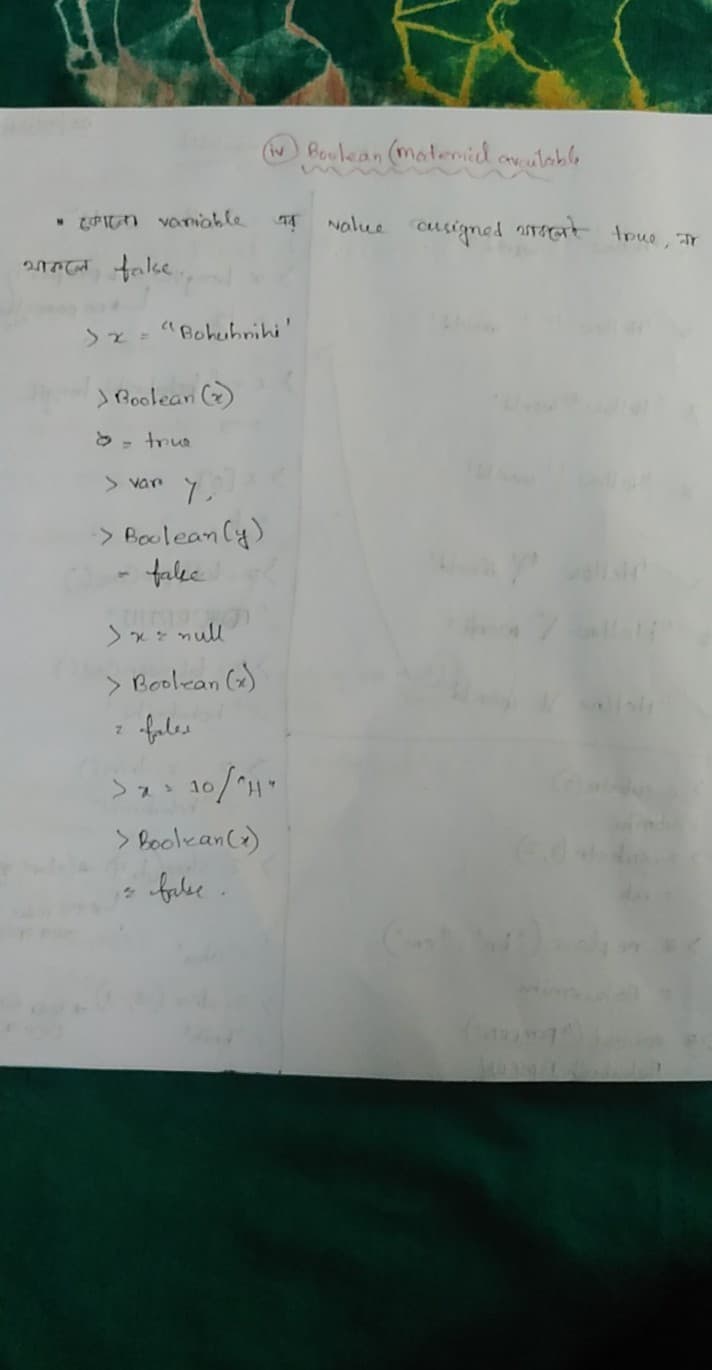 (iv) Boolean (material available
• কোনো variable এর value assigned থাকলে true, না
থাকলে false.
> x = "Bohubrihi'
> Boolean (x)
= true
> var y,
> Boolean (y)
= false
> x = null
> Boolean (x)
= fales
> x = 10/"H"
> Boolean (x)
= false.